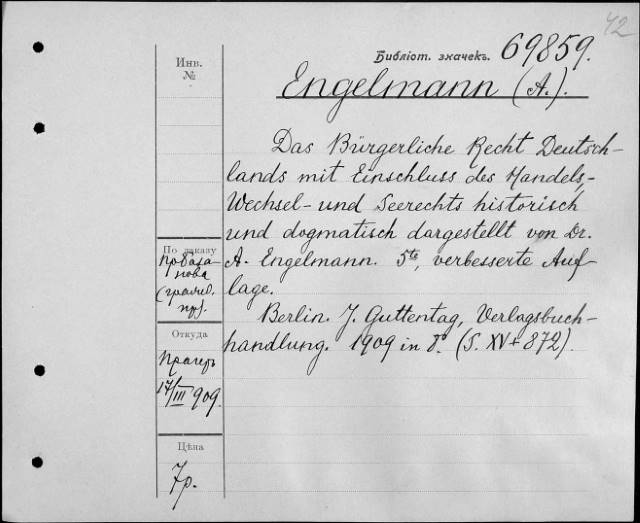 42
Библіот. значекъ. 69859.
Engelmann (A.).
Инв.
№
Das Bürgerliche Recht Deutsch-
lands mit Einschluss des Handels-,
Wechsel- und Seerechts historisch
und dogmatisch dargestellt von Dr.
A. Engelmann. 5te, verbesserte Auf-
lage.
Berlin. J. Guttentag, Verlagsbuch-
handlung. 1909 in 8°. (S. XV+872).
По заказу
(гражд.
пр).
Откуда
Прагеръ
17/III 909.
Цѣна
7р.